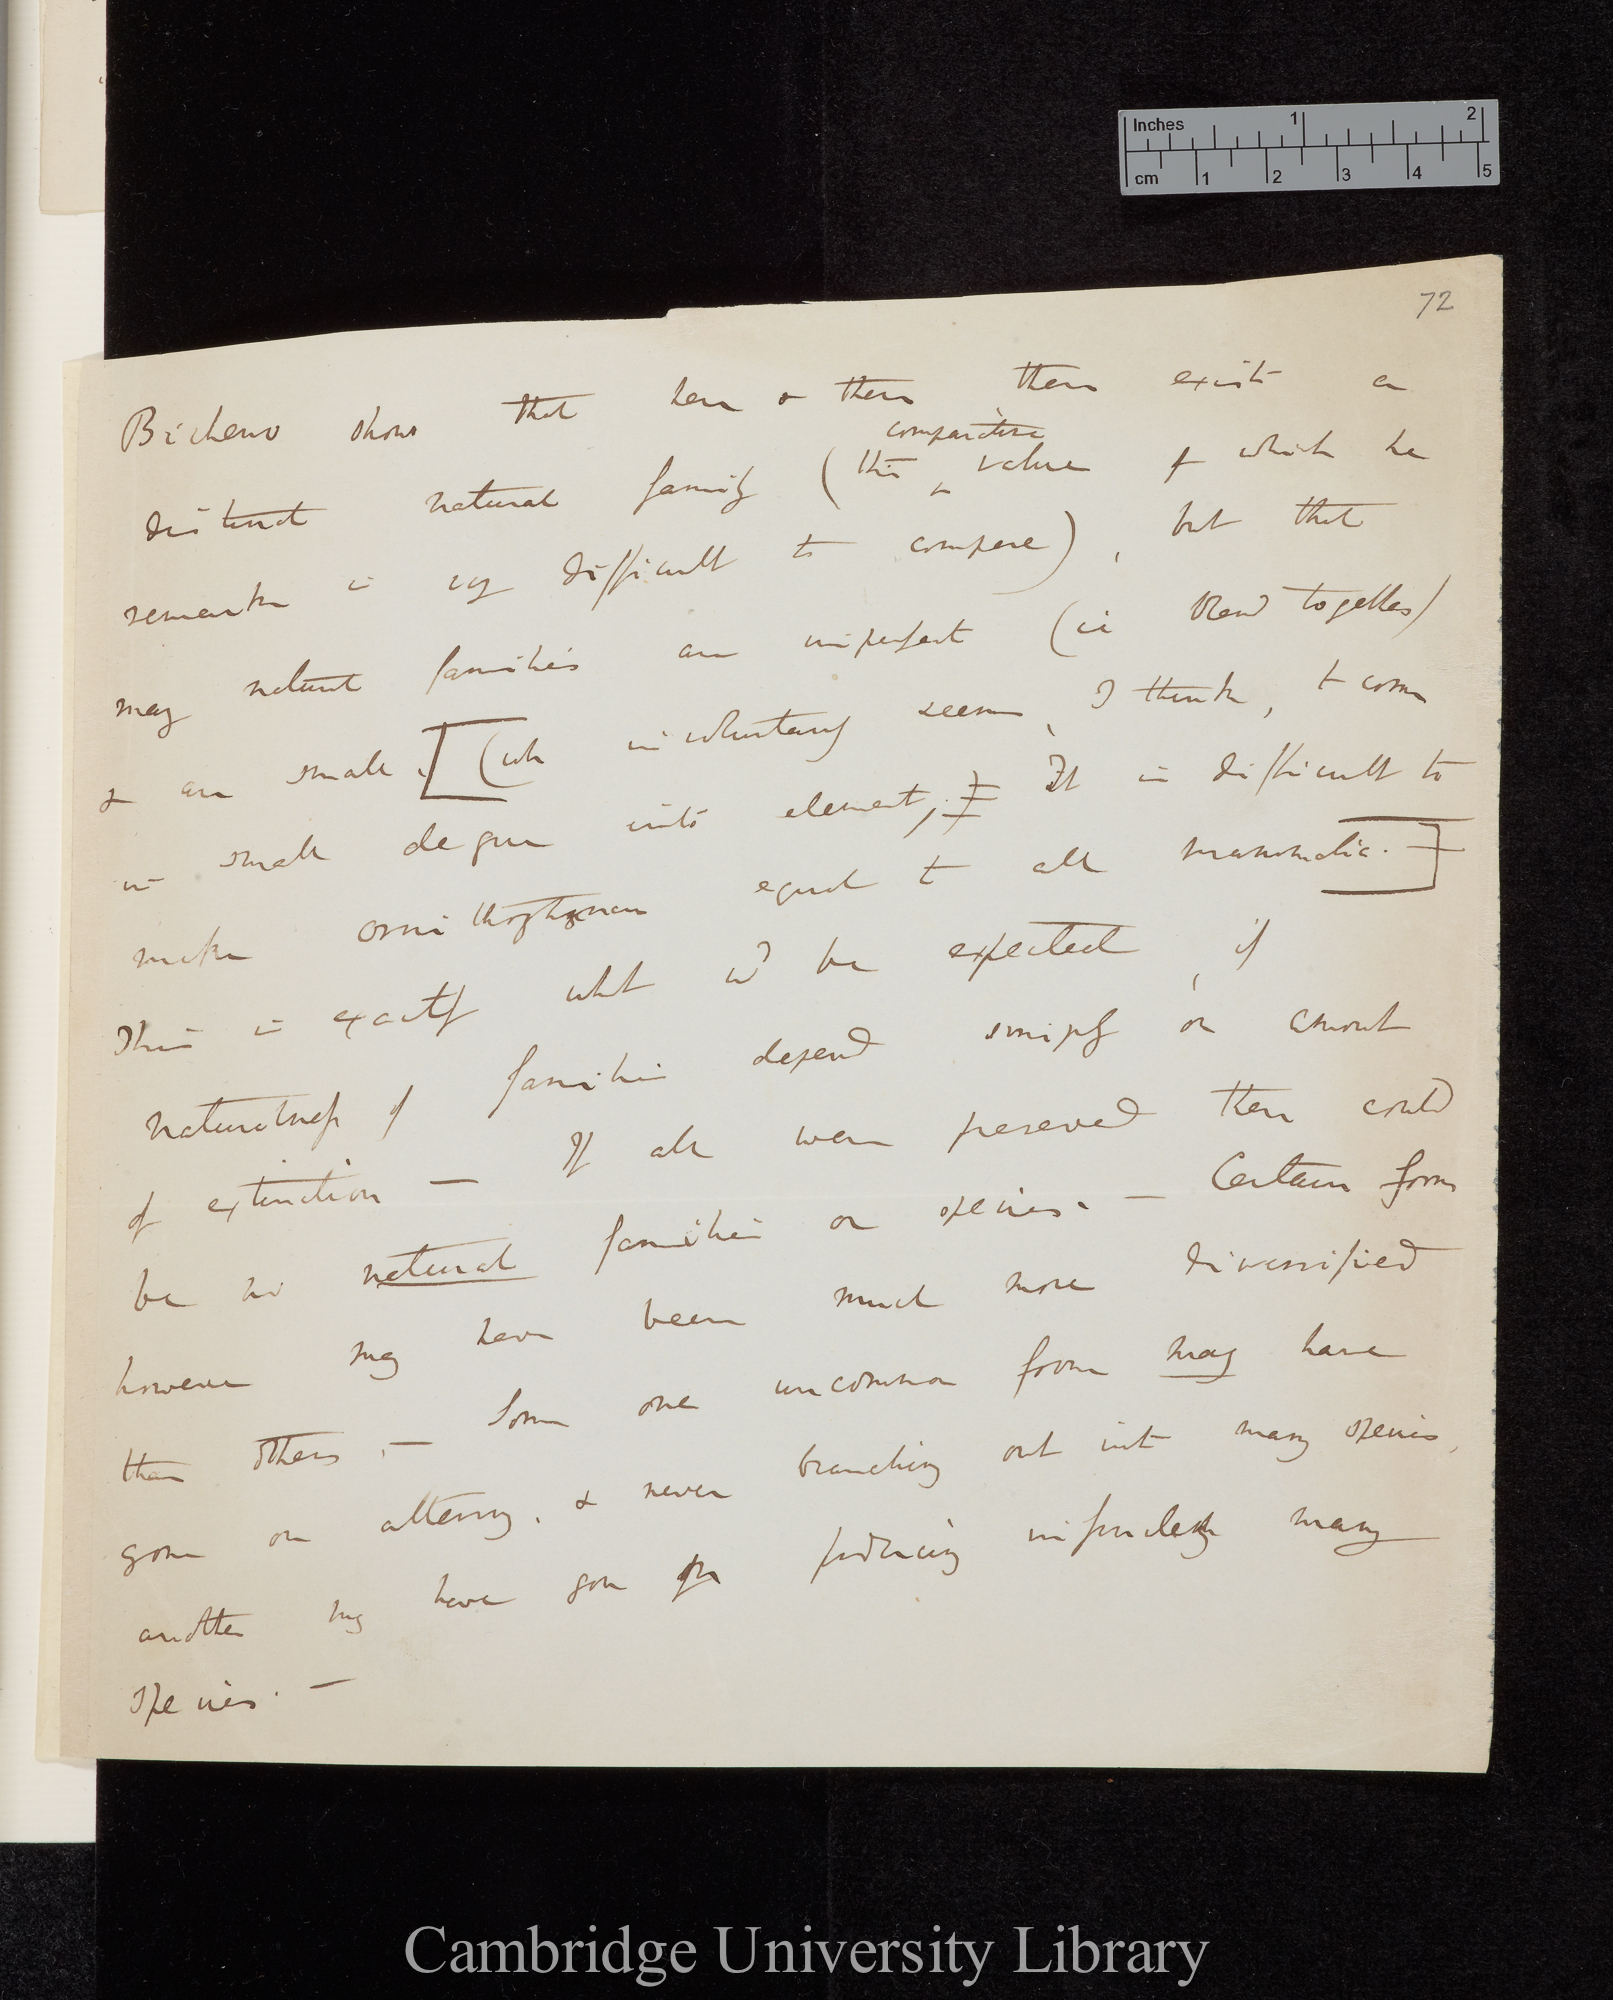 Inches 1 2
cm 1 2 3 4 5
72
Bicheno shows that here & there there exists a
comparative
distinct natural family (this value of which he
remarks is very difficult to compare), but that
many natural families are imperfect (ie blend together)
& are small. [(wh involuntary seem, I think, to come
in small degree into element; It is difficult to
make equal to all mammalia.]
This is exactly what wd be expected, if
naturalness of families depend simply on amount
of extinction — If all were preserved there could
be no natural families or species. — Certain forms
however may have been much more diversified
than others. — Some one uncommon form may have
gone on altering, & never branching out into many species,
another may have gone on producing infinitely many
species. —
Cambridge University Library